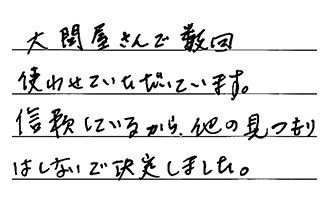 大問屋さんで数回
使わせていただいています。
信頼しているから、他の見つもり
はしないで決定しました。